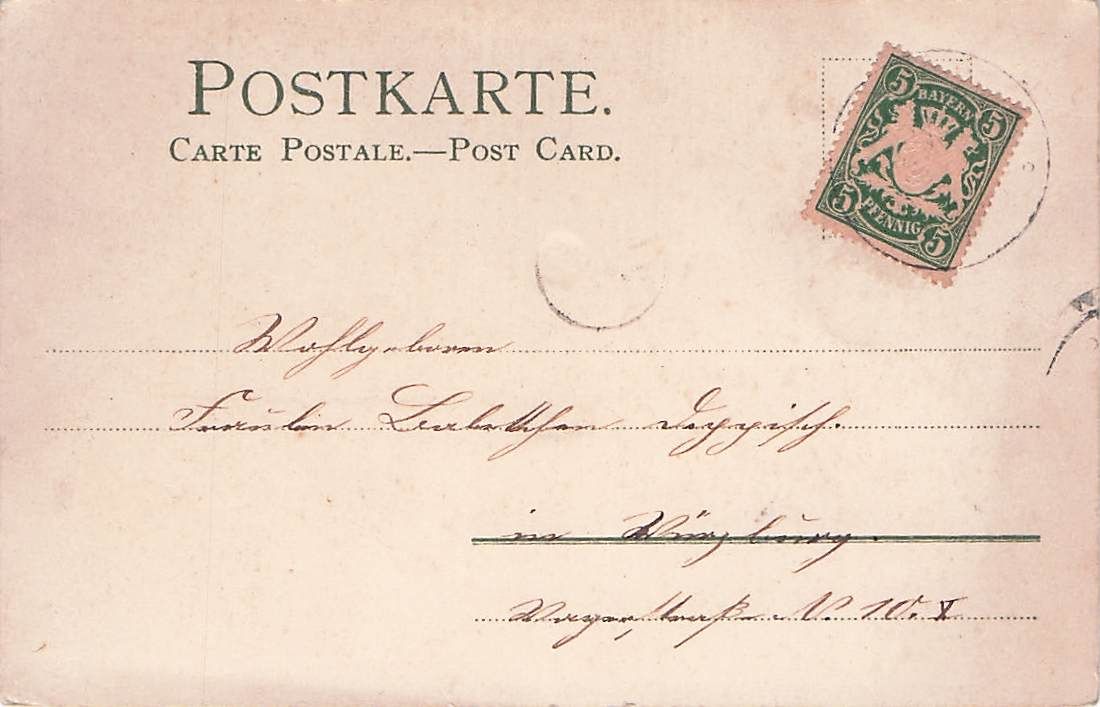 POSTKARTE.
CARTE POSTALE.—POST CARD.
5 BAYERN 5
5 PFENNIG 5
Wohlgeboren
Fräulein Babettchen Deppisch.
in Würzburg.
N. 10. I